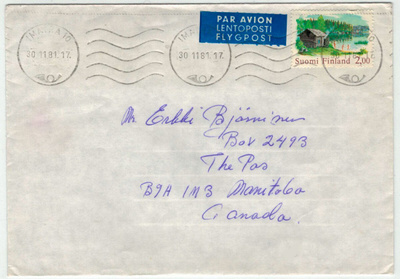 PAR AVION
LENTOPOSTI
FLYGPOST
30.11.81.17.
30.11.81.17.
Suomi Finland 2,00
Mr Erkki
Box 2493
The Pas
B9A 1M3 Manitoba
Canada.